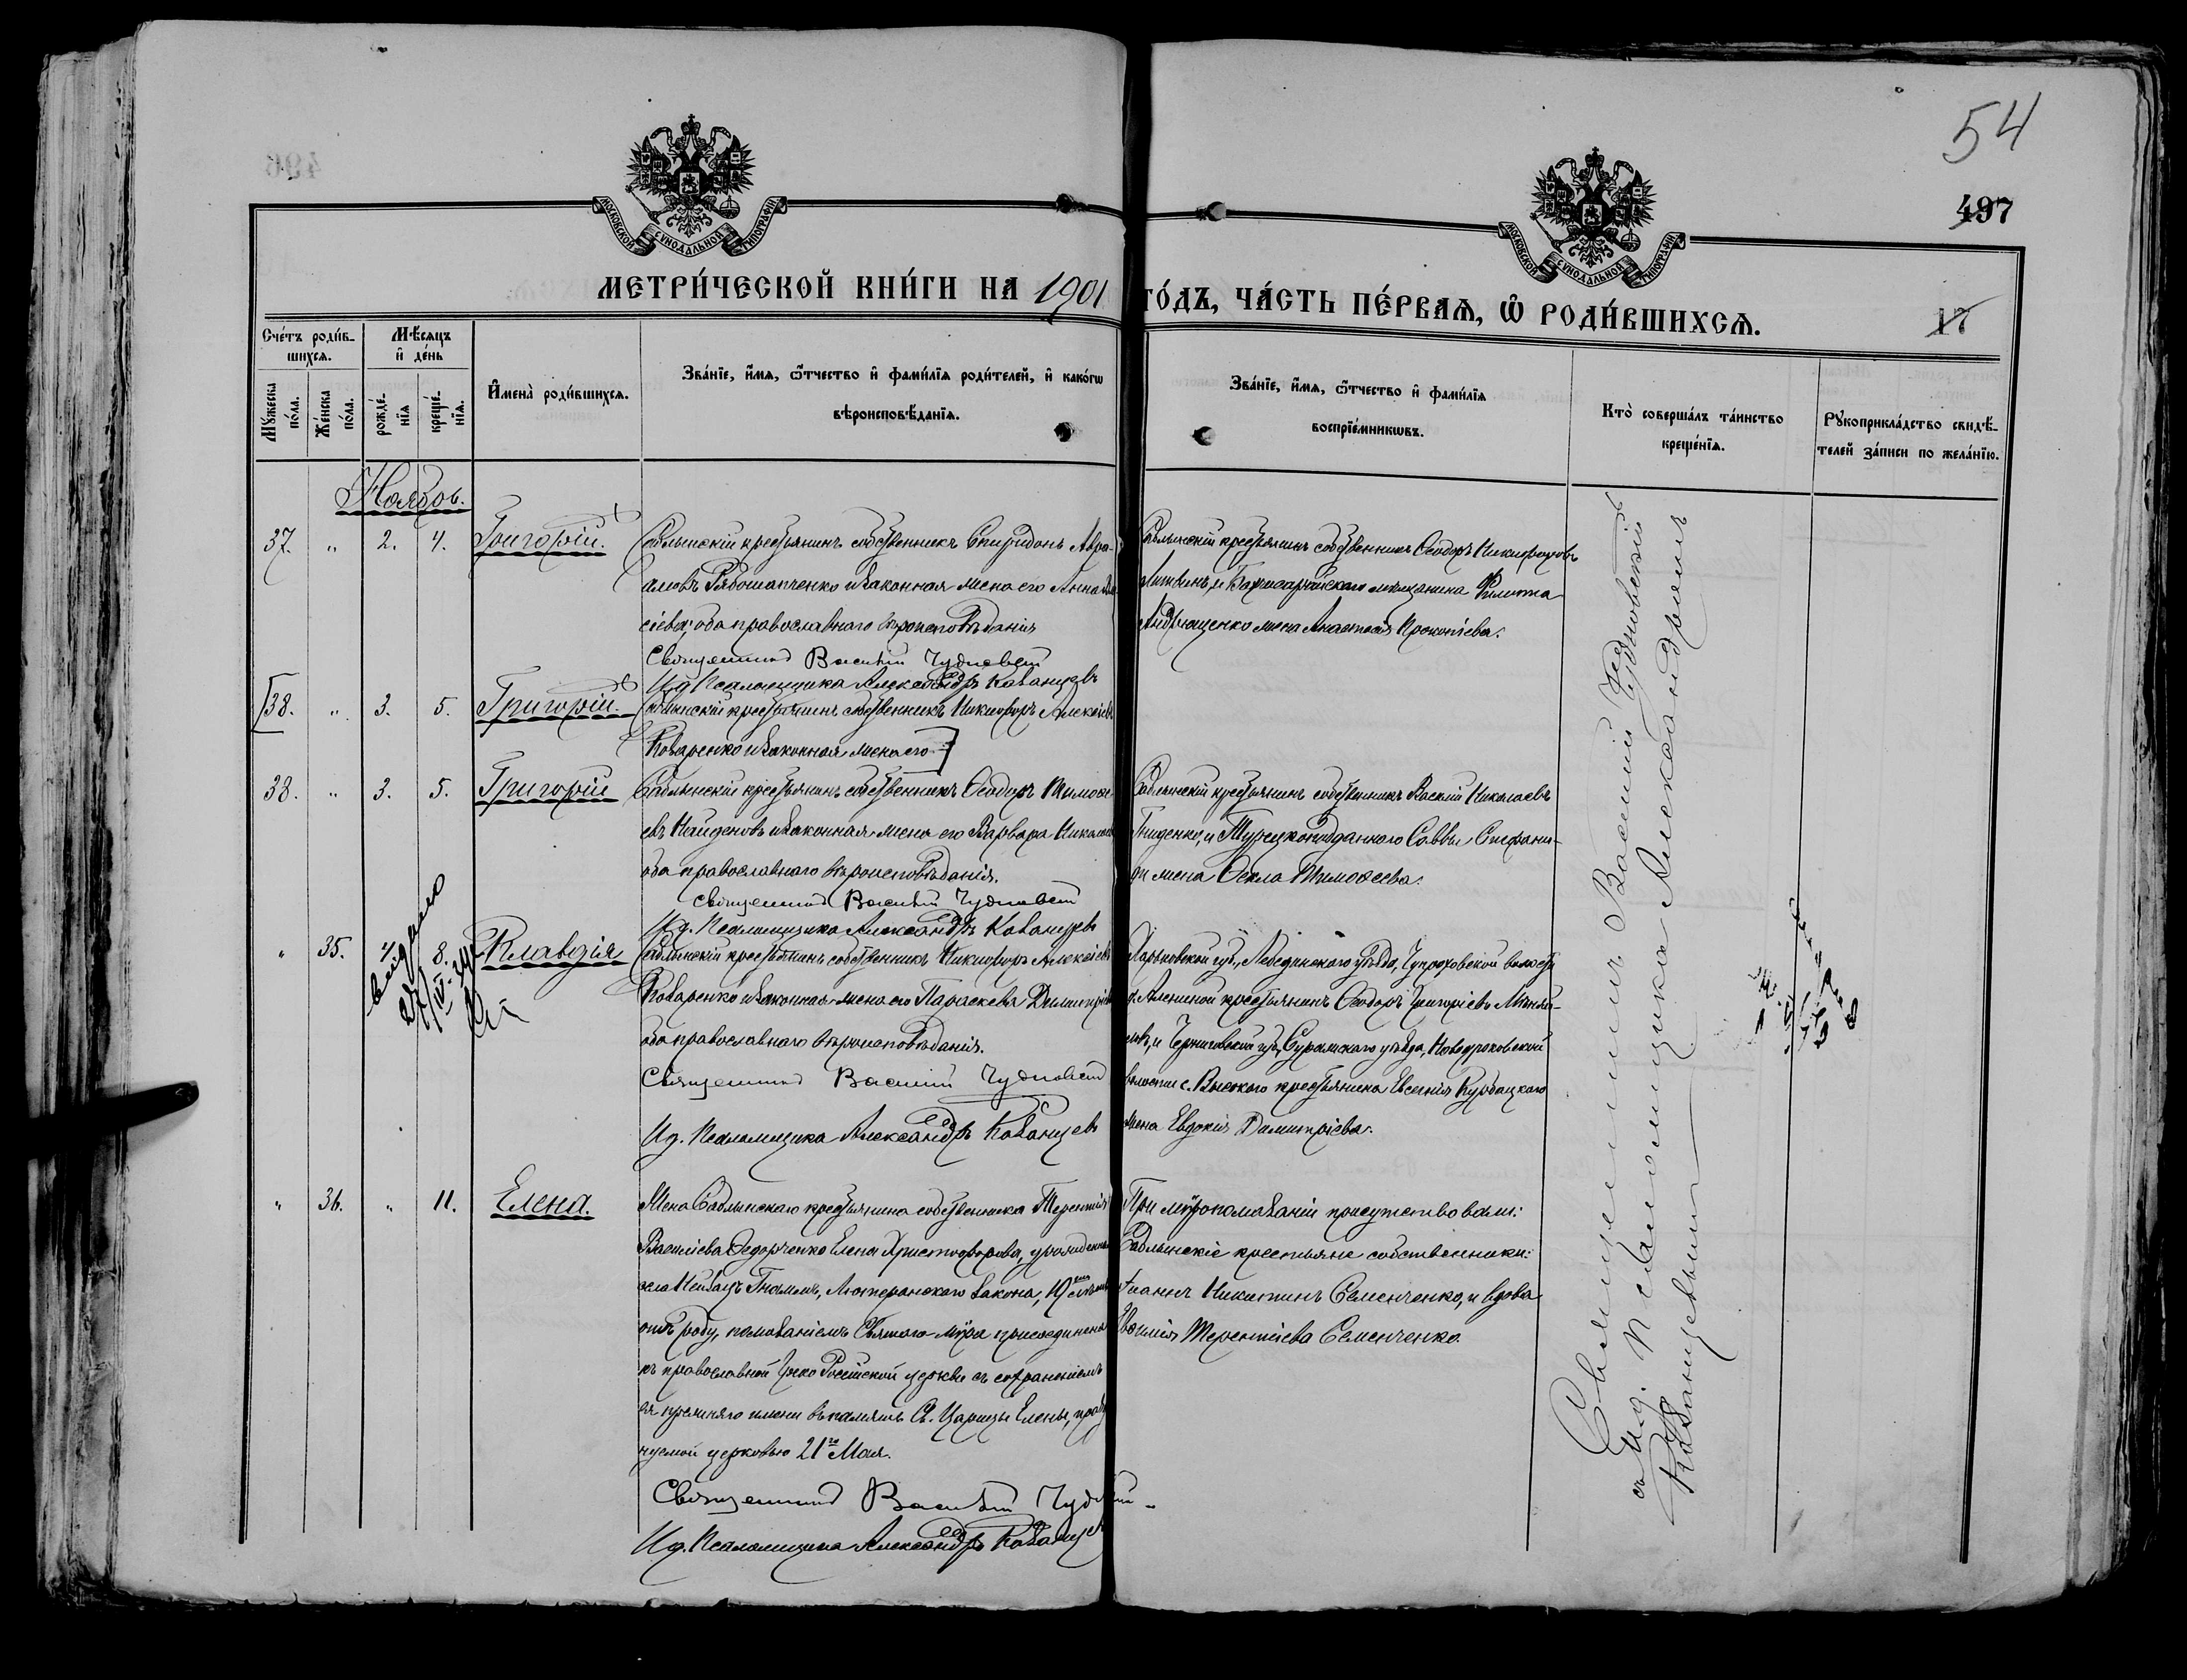 54
497
МОСКОВСКОЙ СѴНОДАЛЬНОЙ ТИПОГРАФІИ
МОСКОВСКОЙ СѴНОДАЛЬНОЙ ТИПОГРАФІИ
МЕТРИ́ЧЕСКОЙ КНИ́ГИ НА 1901 ГО́ДЪ, ЧА́СТЬ ПЕ́РВАЯ, Ѡ РОДИ́ВШИХСЯ.
17
Сче́тъ роди́в-
шихся.
Мѣ́сяцъ
и де́нь
Мꙋ́жеска
по́ла.
Же́нска
по́ла.
рожде́-
нїя
креще́-
нїя.
Имена̀ роди́вшихся.
Зва́нїе, и́мя, ѻ́тчество и фами́лїя роди́телей, и како́гѡ
вѣроисповѣ́данїя.
Зва́нїе, и́мя, ѻ́тчество и фами́лїя
воспрїе́мникѡвъ.
Кто̀ соверша́лъ та́инство
креще́нїя.
Рꙋкоприкла́дство свидѣ́-
телей за́писи по жела́нїю.
Ноябрь.
37. " 2. 4. Григорій.
Саблынскій крестьянинъ собственникъ Спиридонъ Авра-
амовъ Рябошапченко и законная жена его Анна
сіева; оба православнаго вѣроисповѣданія
Священникъ Василій Чудновскій
Ид. Псаломщика Александръ Казанцевъ
Саблынскій крестьянинъ собственникъ Ѳеодоръ Никифоровъ
Литвинъ, и Бахчисарайскаго мѣщанина Филиппа
Андрющенко жена Анастасія Прокопіева.
38. " 3. 5. Григорій.
Саблынскій крестьянинъ собственникъ Никифоръ Алексѣевъ
Коваренко и законная жена его
38. " 3. 5. Григорій
Саблынскій крестьянинъ собственникъ Ѳеодоръ Тимоѳе-
евъ Найденовъ и законная жена его Варвара Николаева
оба православнаго вѣроисповѣданія.
Священникъ Василій Чудновскій
Ид. Псаломщика Александръ Казанцевъ
Саблынскій крестьянинъ собственникъ Василій Николаевъ
Гниденко, и Турецкоподданнаго Саввы Стефани-
ди жена Ѳекла Тимоѳеева.
" 35. 4. 8. Клавдія
выдано
Саблынскій крестьянинъ собственникъ Никифоръ Алексѣевъ
Коваренко и законная жена его Параскева Димитріева
оба православнаго вѣроисповѣданія.
Священникъ Василій Чудновскій
Ид. Псаломщика Александръ Казанцевъ
Харьковской губ., Лебединскаго уѣзда, волости
крестьянинъ Ѳеодоръ Григоріевъ
и Черниговской губ., Суражскаго уѣзда,
волости с. Высокаго крестьянина Евсенія Курбацкаго
жена Евдокія Димитріева.
" 36. " 11. Елена.
Жена Саблынскаго крестьянина собственника Терентія
Василіева Ѳедорченко Елена Христофорова, урожденная
Лютеранскаго закона, 19
отъ роду, помазаніемъ Святаго мѵра присоединена
къ православной Греко Россійской церкви съ сохраненіемъ
ея прежняго имени въ память Св. Царицы Елены, празд
нуемой церковью 21го Мая.
Священникъ Василій Чудновскій
Ид. Псаломщика Александръ Казанцевъ
При мѵропомазаніи присутствовали:
Саблынскіе крестьяне собственники:
Іоаннъ Никитинъ Семенченко, и вдова
Терентіева Семенченко.
Священникъ Василій Чудновскій
съ Ид. Псаломщика Александромъ
Казанцевымъ